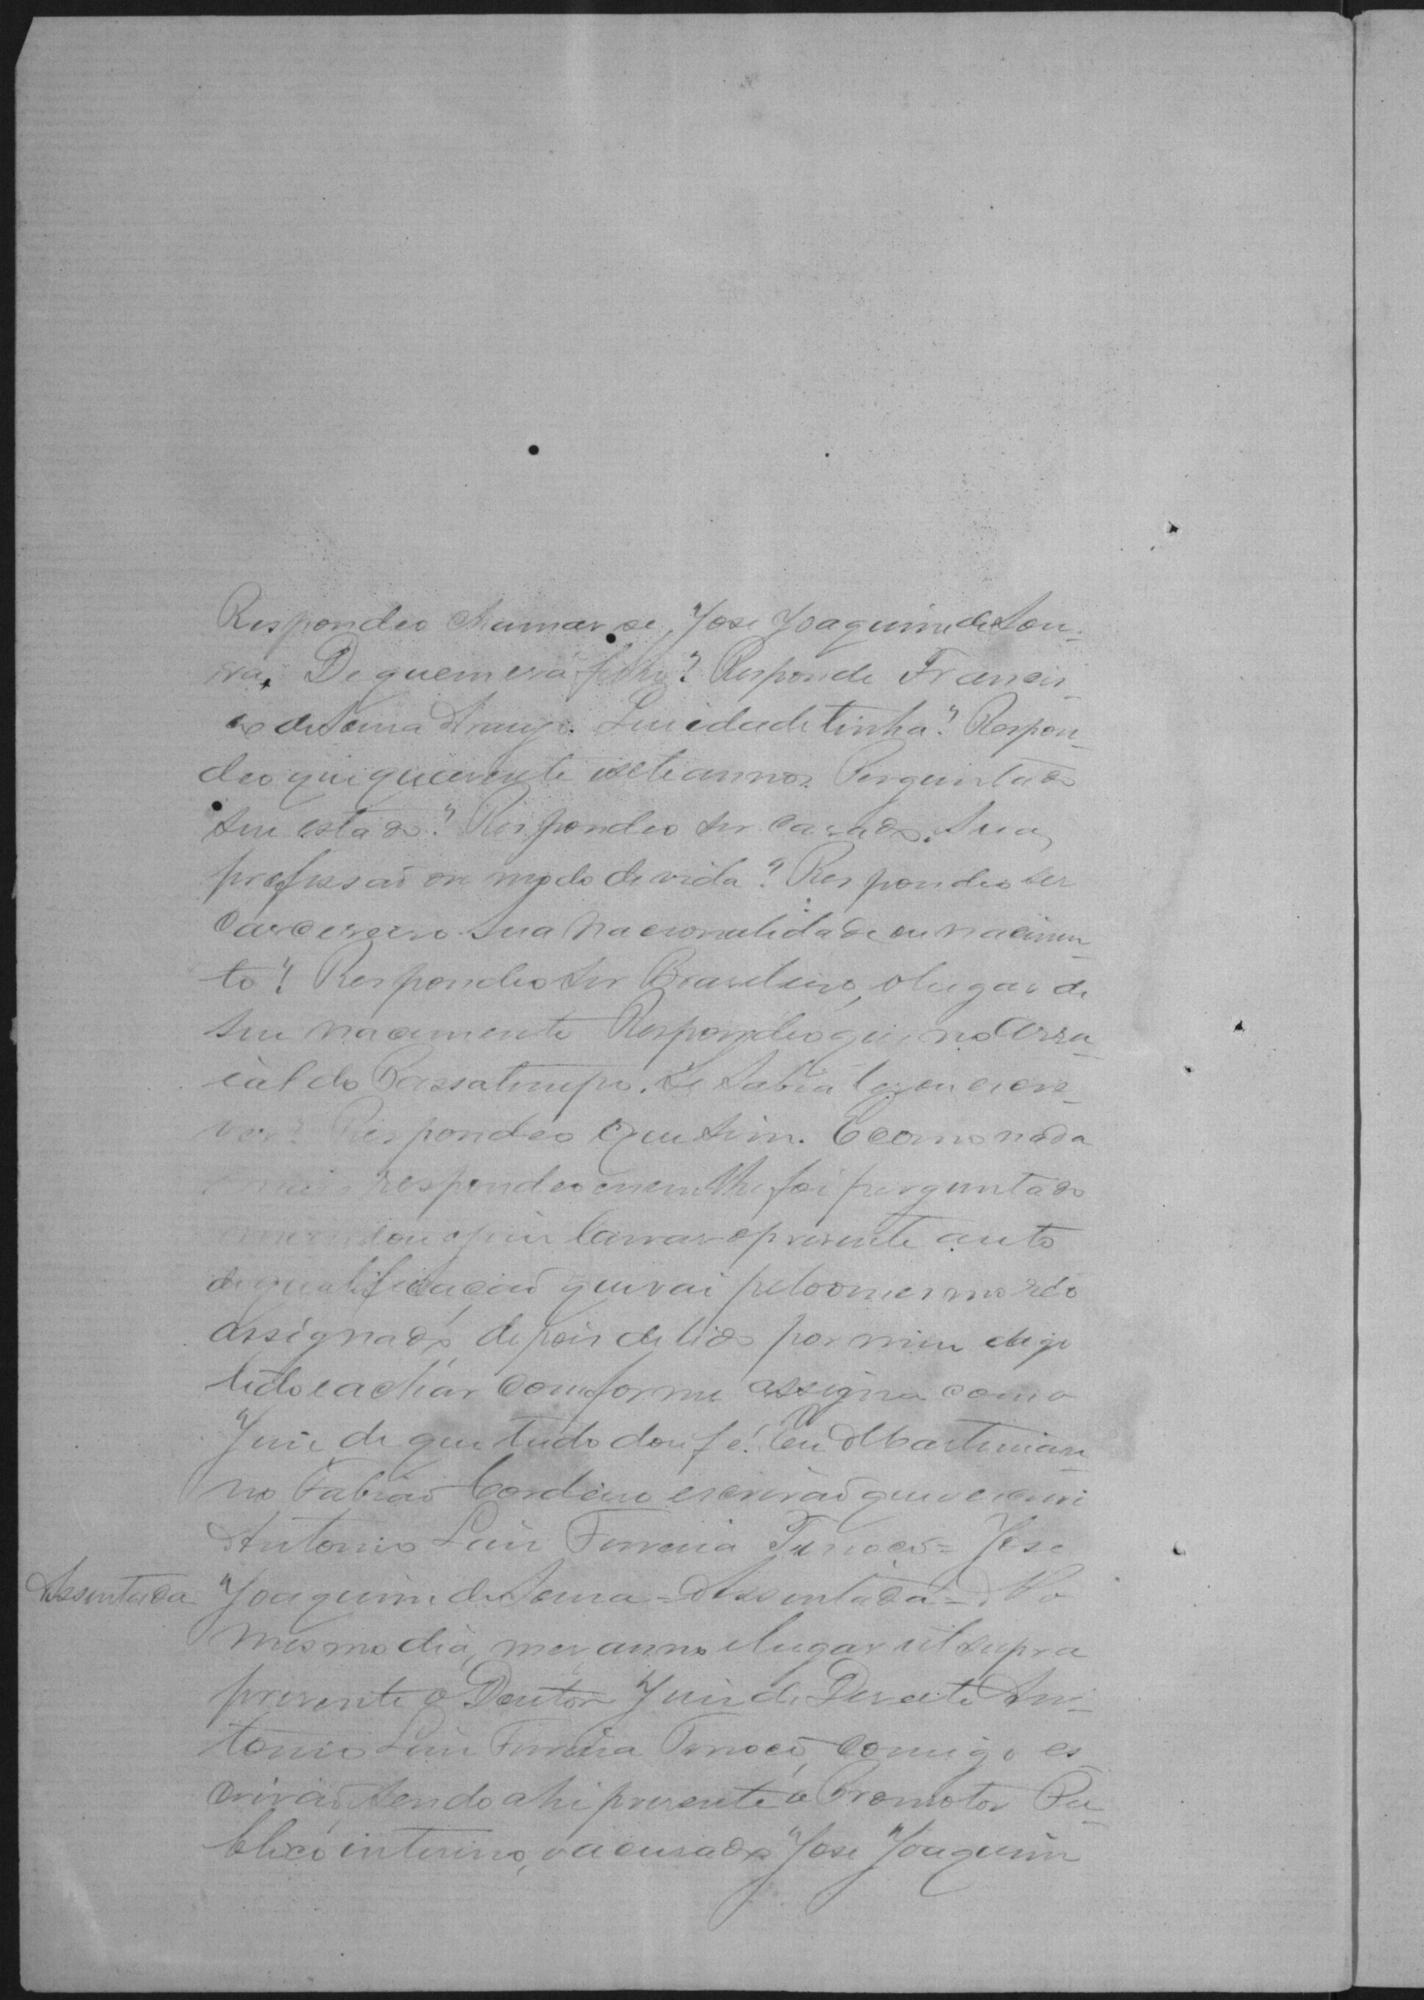 Respondeo chamar se, José Joaquim de Sou-
sa. De quem era filho? Responde Francis-
co de Sousa Araujo. Que idade tinha? Respon-
deo que quarenta e sete annos. Perguntado
seu estado? Respondeo ser casado. Sua
profissaõ ou modo de vida? Respondeo ser
Carcereiro Sua Nacionalidade ou nacimen-
to? Respondeo ser Brasileiro, o lugar de
seu nacimento Respondeo que, no Arra-
ial do Passatempo. Se Sabia ler ou escre-
ver? Respondeo que sim. E como nada
mais respondeo e nem lhe foi perguntado
mandou o juiz lavrar o presente auto
de qualificaçaõ que vai pelo mesmo réo
assignado depois de lido por mim
lido e achar conforme assigna com o
Juiz de que tudo dou fé. Eu Martinian-
no Fabiaõ Cordeiro escrivaõ que o escrevi
Antonio Luiz Ferreira Tinoco = José
Assentada
Joaquim de Sousa = Assentada = No
mesmo dia, mes anno e lugar ut supra
presente o Doutor Juiz de Direito An-
tonio Luiz Ferreira Tinoco, comigo es
crivaõ, sendo ahi presente o Promotor Pu-
blico interino, o accusado José Joaquim